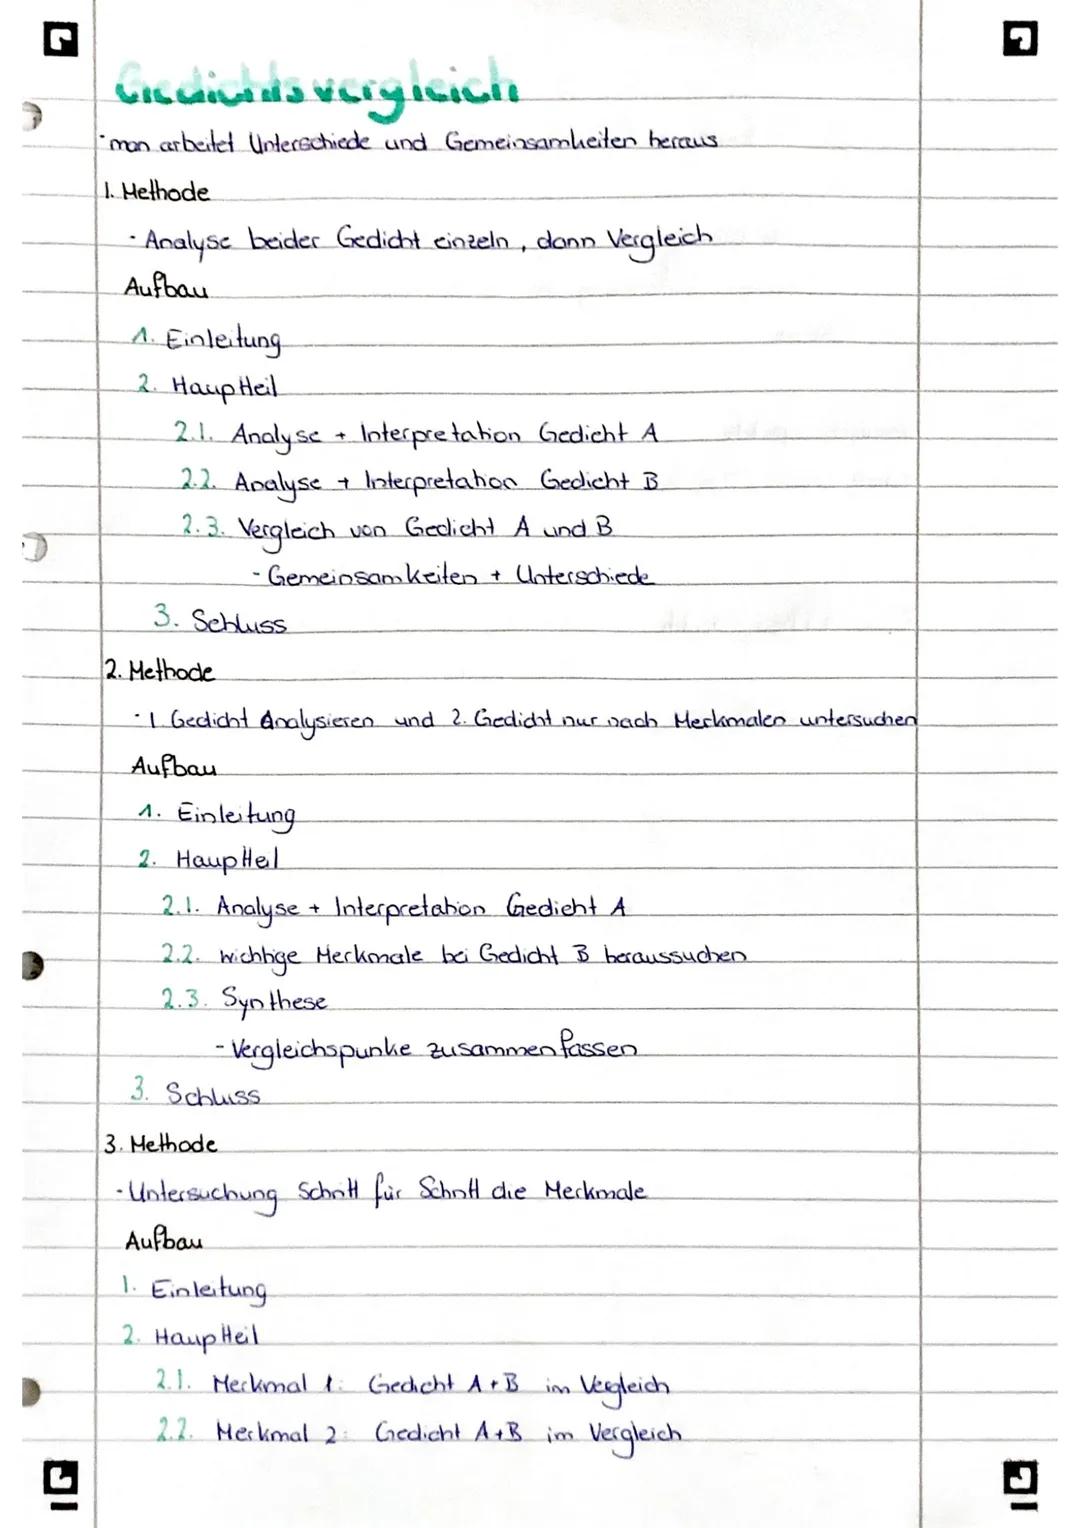 Gedichtsvergleich
· man arbeitet Unterschiede und Gemeinsamkeiten heraus
1. Methode
· Analyse beider Gedicht einzeln, dann Vergleich
Aufbau
1. Einleitung
2. Hauptteil
2.1. Analyse + Interpretation Gedicht A
2.2. Analyse + Interpretation Gedicht B
2.3. Vergleich von Gedicht A und B
- Gemeinsamkeiten + Unterschiede
3. Schluss
2. Methode
· 1 Gedicht Analysieren und 2. Gedicht nur nach Merkmalen untersuchen
Aufbau
1. Einleitung
2. Hauptteil
2.1. Analyse + Interpretation Gedicht A
2.2. wichtige Merkmale bei Gedicht B heraussuchen
2.3. Synthese
- Vergleichspunke zusammenfassen
3. Schluss
3. Methode
· Untersuchung Schritt für Schritt die Merkmale
Aufbau
1. Einleitung
2. Hauptteil
2.1. Merkmal 1: Gedicht A+B im Vegleich
2.2. Merkmal 2: Gedicht A+B im Vergleich